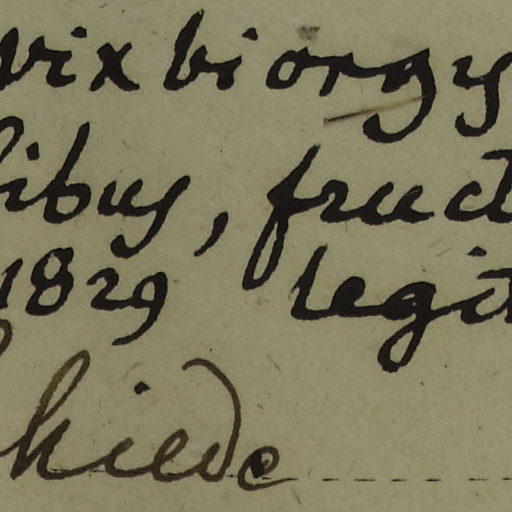 vix biorgy
libus, fruct
1829 legit
hiede